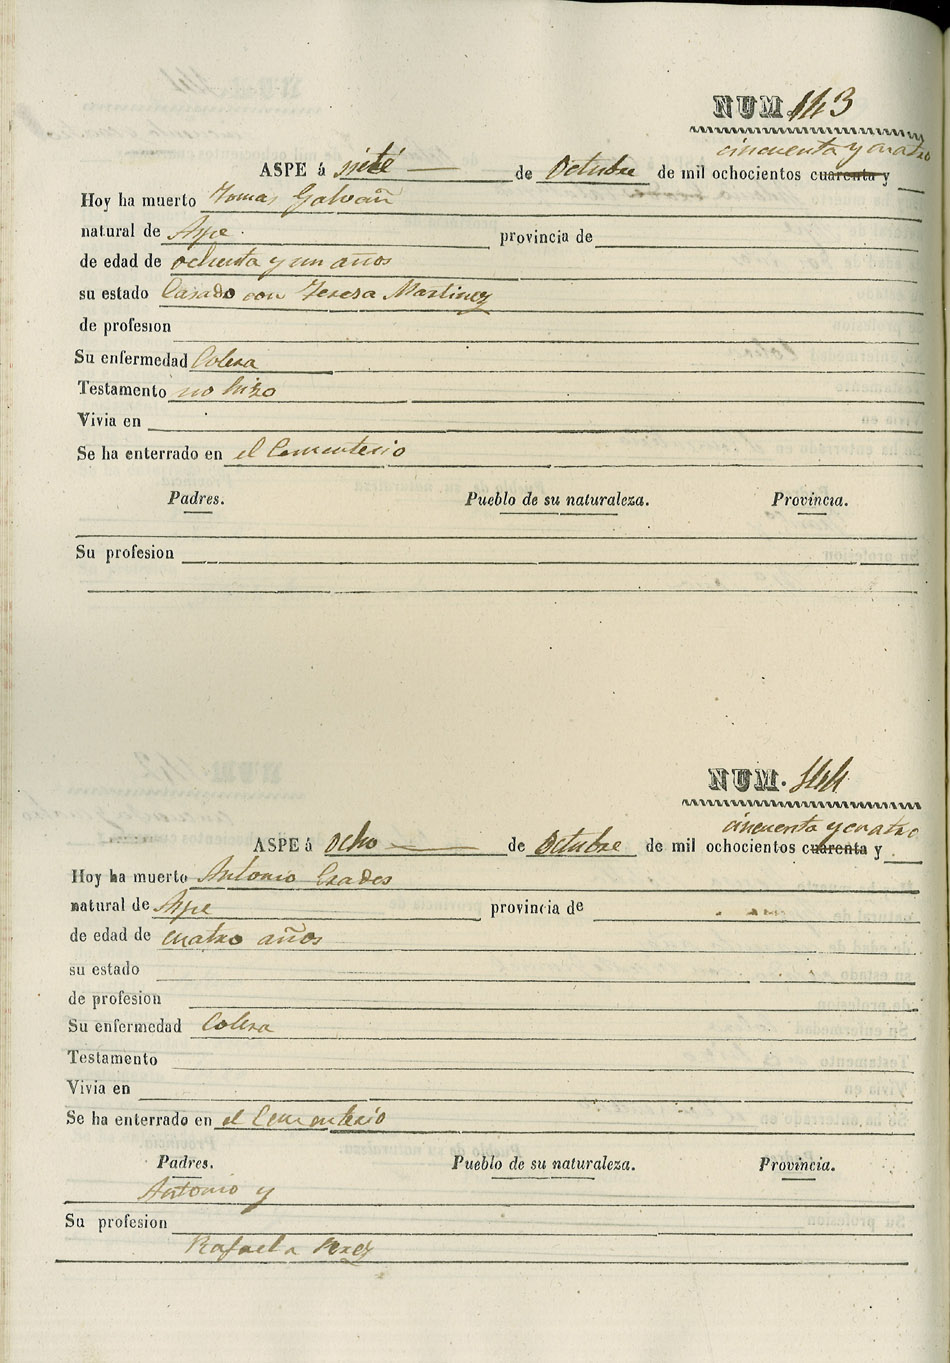 NUM. 143
cincuenta y cuatro
ASPE á siete de Octubre de mil ochocientos cuarenta y
Hoy ha muerto Tomas Galvañ
natural de Aspe. provincia de
de edad de ochenta y un años
su estado Casado con Teresa Martinez
de profesion
Su enfermedad Colera
Testamento no hizo
Vivia en
Se ha enterrado en el Cementerio
Padres. Pueblo de su naturaleza. Provincia.
Su profesion
NUM. 144
cincuenta y cuatro
ASPE á ocho de Octubre de mil ochocientos cuarenta y
Hoy ha muerto Antonio Erades
natural de Aspe provincia de
de edad de cuatro años
su estado
de profesion
Su enfermedad Colera
Testamento
Vivia en
Se ha enterrado en el Cementerio
Padres. Pueblo de su naturaleza. Provincia.
Antonio y
Su profesion
Rafaela Perez